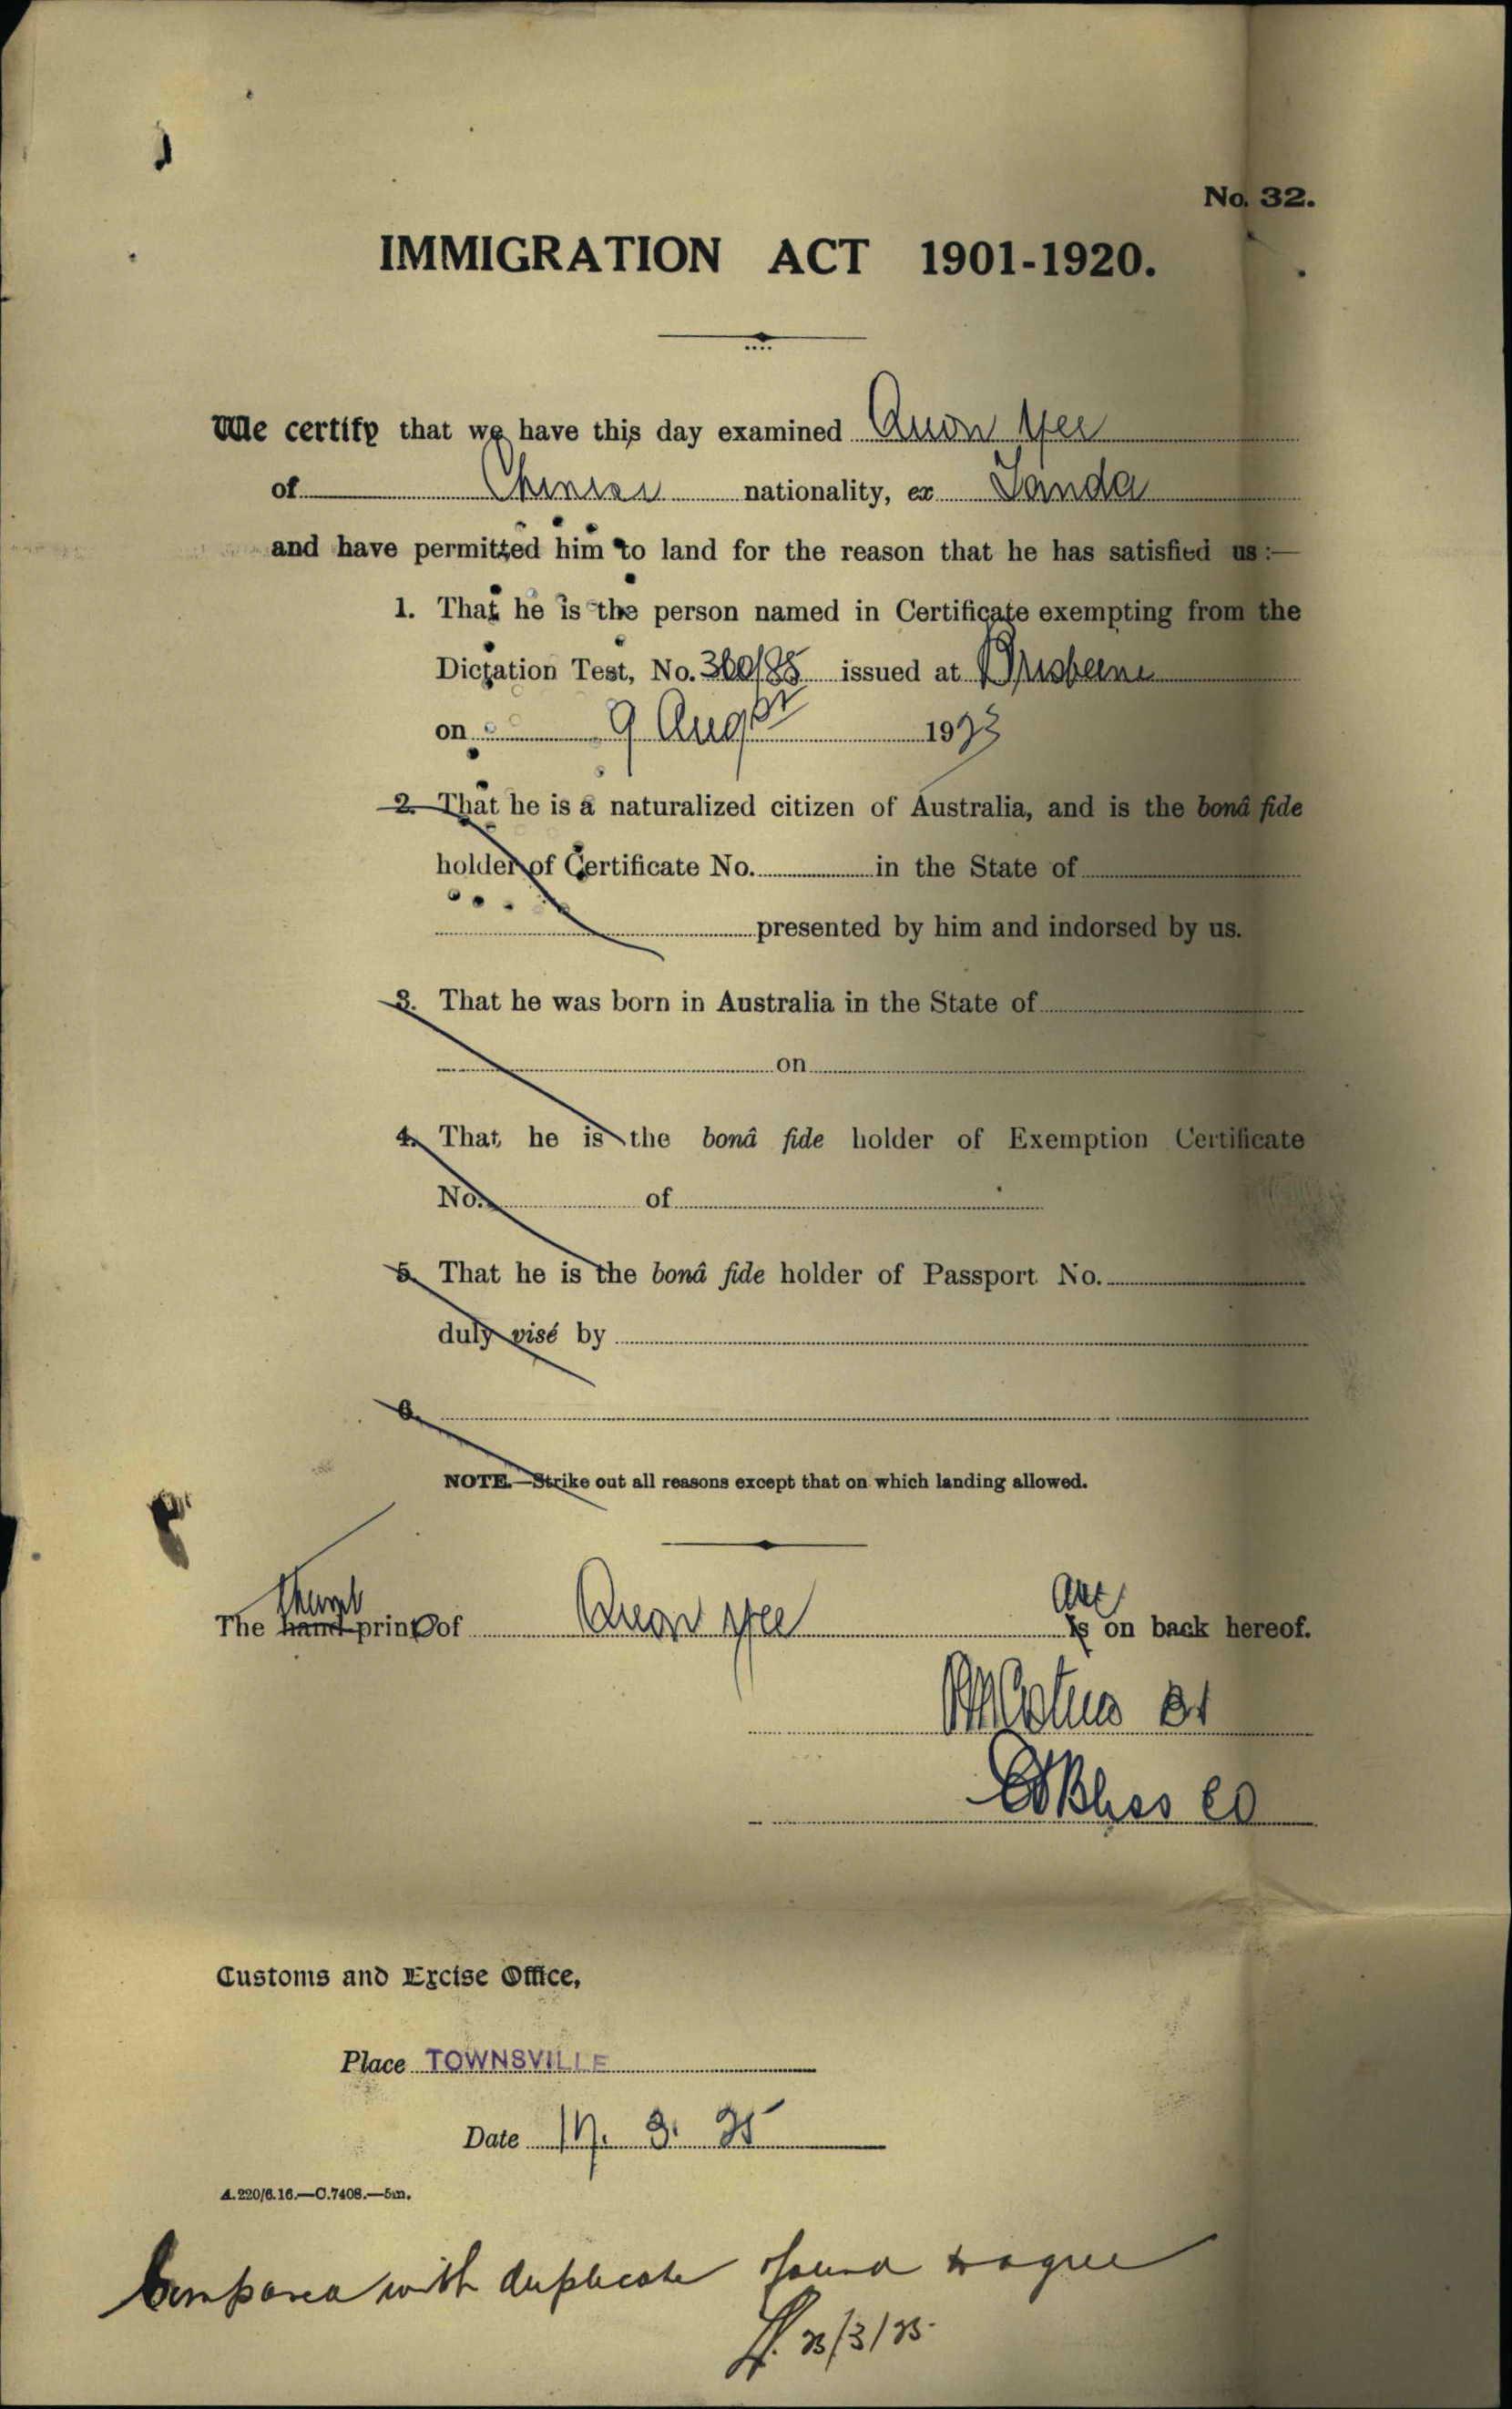 No. 32.
IMMIGRATION ACT 1901-1920.
We certify that we have this day examined Quon Yee
of Chinese nationality, ex Tanda
and have permitted him to land for the reason that he has satisfied us:—
1. That he is the person named in Certificate exempting from the
Dictation Test, No. 360/85 issued at Brisbane
on 9 Augst 1923
2. That he is a naturalized citizen of Australia, and is the bonâ fide
holder of Certificate No. in the State of
presented by him and indorsed by us.
3. That he was born in Australia in the State of
on
4. That he is the bonâ fide holder of Exemption Certificate
No. of
5. That he is the bonâ fide holder of Passport No.
duly visé by
6.
NOTE.—Strike out all reasons except that on which landing allowed.
Thumb are
The hand-print of Quon Yee is on back hereof.
Customs and Excise Office,
Place TOWNSVILLE
Date 17. 3. 25
A.220/6.16.—C.7408.—5m.
Compared with duplicate found to agree
23/3/25